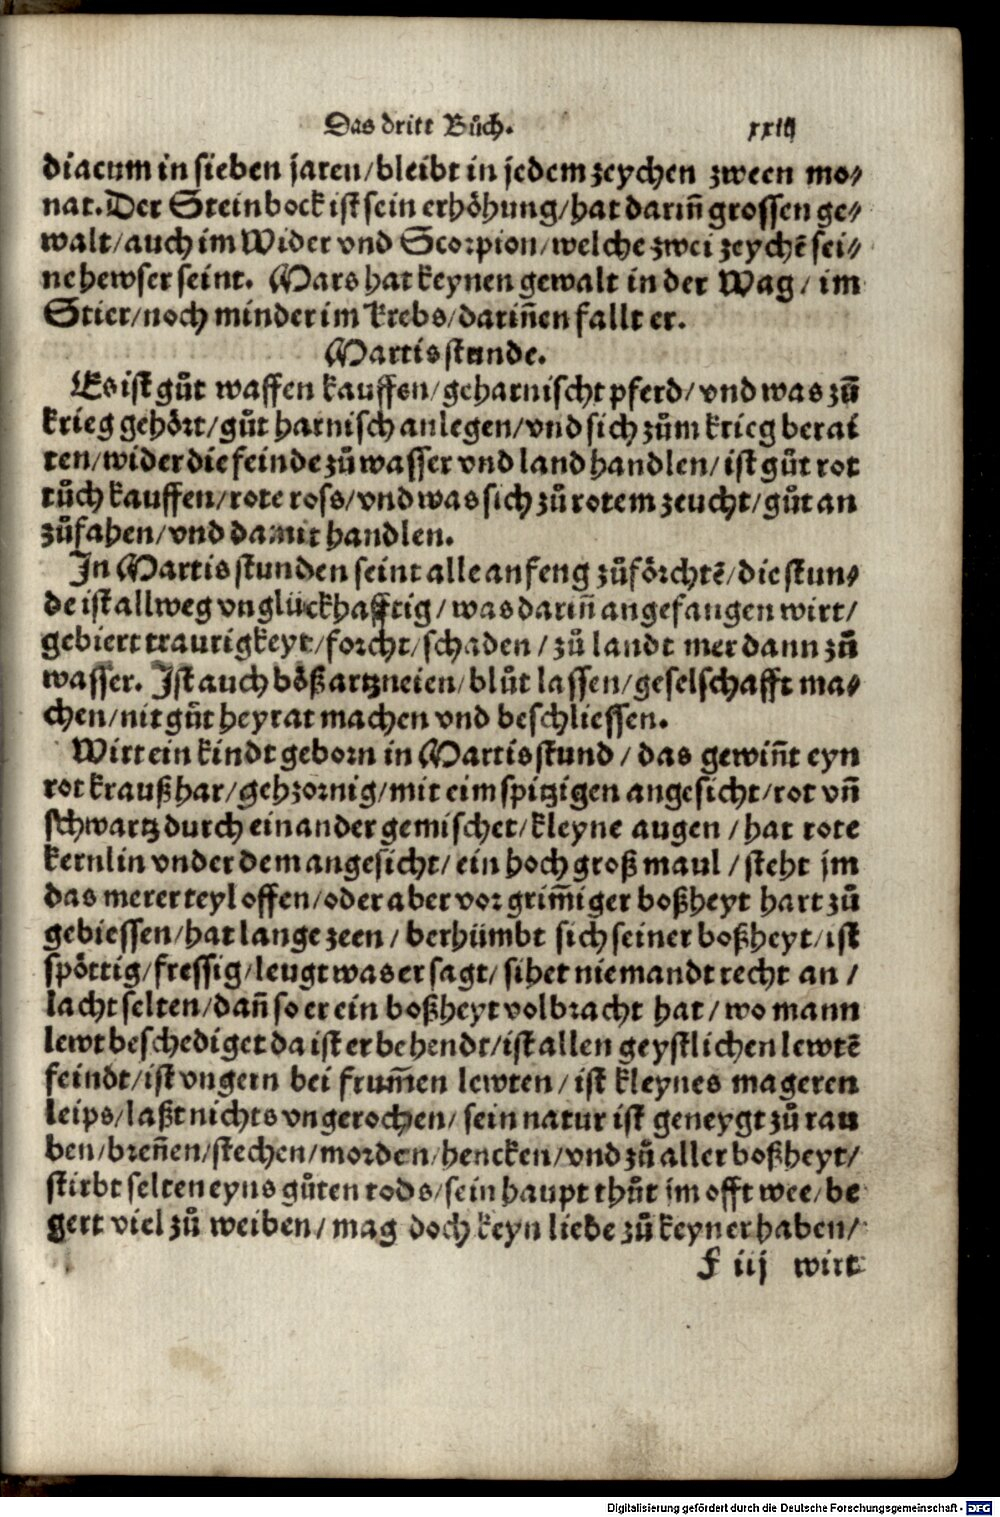 Das dritt Bůch. xxiij
diacum in sieben jaren/bleibt in jedem zeychen zween mo⸗
nat. Der Steinbock ist sein erhöhung/hat dariñ grossen ge⸗
walt/auch im Wider vnd Scorpion/welche zwei zeychẽ sei⸗
ne hewser seint. Mars hat keynen gewalt in der Wag/im
Stier/noch minder im Krebs/dariñen fallt er.
Martis stunde.
Es ist gůt waffen kauffen/geharnischt pferd/vnd was zů
krieg gehört/gůt harnisch anlegen/vnd sich zům krieg berai
ten/wider die feinde zů wasser vnd land handlen/ist gůt rot
tůch kauffen/rote ross/vnd was sich zů rotem zeucht/gůt an
zůfahen/vnd damit handlen.
In Martis stunden seint alle anfeng zůförchtẽ/die stun⸗
de ist allweg vnglückhafftig/was dariñ angefangen wirt/
gebiert traurigkeyt/forcht/schaden/zů landt mer dann zů
wasser. Ist auch böß artzneien/blůt lassen/geselschafft ma⸗
chen/nit gůt heyrat machen vnd beschliessen.
Wirt ein kindt geborn in Martis stund/das gewiñt eyn
rot krauß har/gehzornig/mit eim spitzigen angesicht/rot vñ
schwartz durch einander gemischet/kleyne augen/hat rote
kernlin vnder dem angesicht/ein hoch groß maul/steht jm
das merer teyl offen/oder aber vor grim̃iger boßheyt hart zů
gebiessen/hat lange zeen/berhümbt sich seiner boßheyt/ist
spöttig/fressig/leugt was er sagt/sihet niemandt recht an/
lacht selten/dañ so er ein boßheyt volbracht hat/wo mann
lewt beschediget da ist er behendt/ist allen geystlichen lewtẽ
feindt/ist vngern bei frum̃en lewten/ist kleynes mageren
leips/laßt nichts vngerochen/sein natur ist geneygt zů rau
ben/breñen/stechen/morden/hencken/vnd zů aller boßheyt/
stirbt selten eyns gůten tods/sein haupt thůt jm offt wee/be
gert viel zů weiben/mag doch keyn liebe zů keyner haben/
F iij wirt
Digitalisierung gefördert durch die Deutsche Forschungsgemeinschaft - DFG